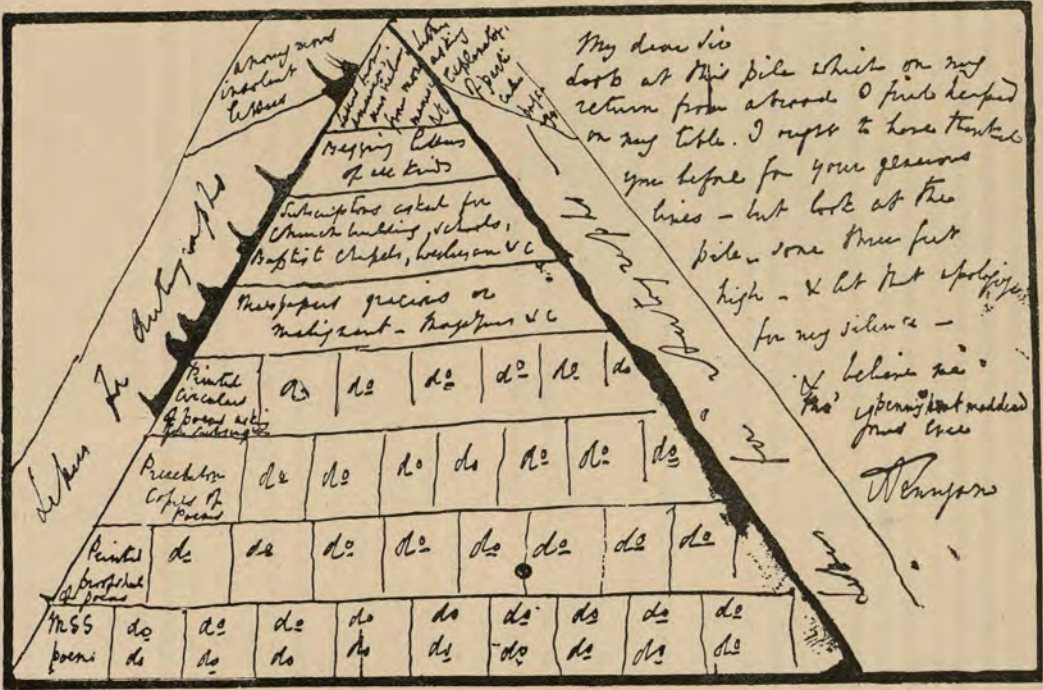 anonymous
insolent
letters
Letters for Autographs
Letters from
from
asking
explanations
of parti
cular
passages
Begging letters
of all kinds
Subscriptions asked for
Church building, schools,
Baptist Chapels, Wesleyan & c
Newspapers gracious or
malignant – Magazines & c
Printed
Circulars
of poems asking
for subscription
do do do do do do
Presentation
Copies of
Poems
do do do do do do do
Printed
proofsheets
of poems
do do do do do do do do
MSS do do do do do do do do do
poems do do do do do do do do do
Letters for Autographs
My dear Sir
Look at this pile which on my
return from abroad I find heaped
on my table. I ought to have thanked
you before for your generous
lines – but look at the
pile, some three feet
high – & let that apologize
for my silence –
& believe me
tho' penny post maddened
yours ever
ATennyson